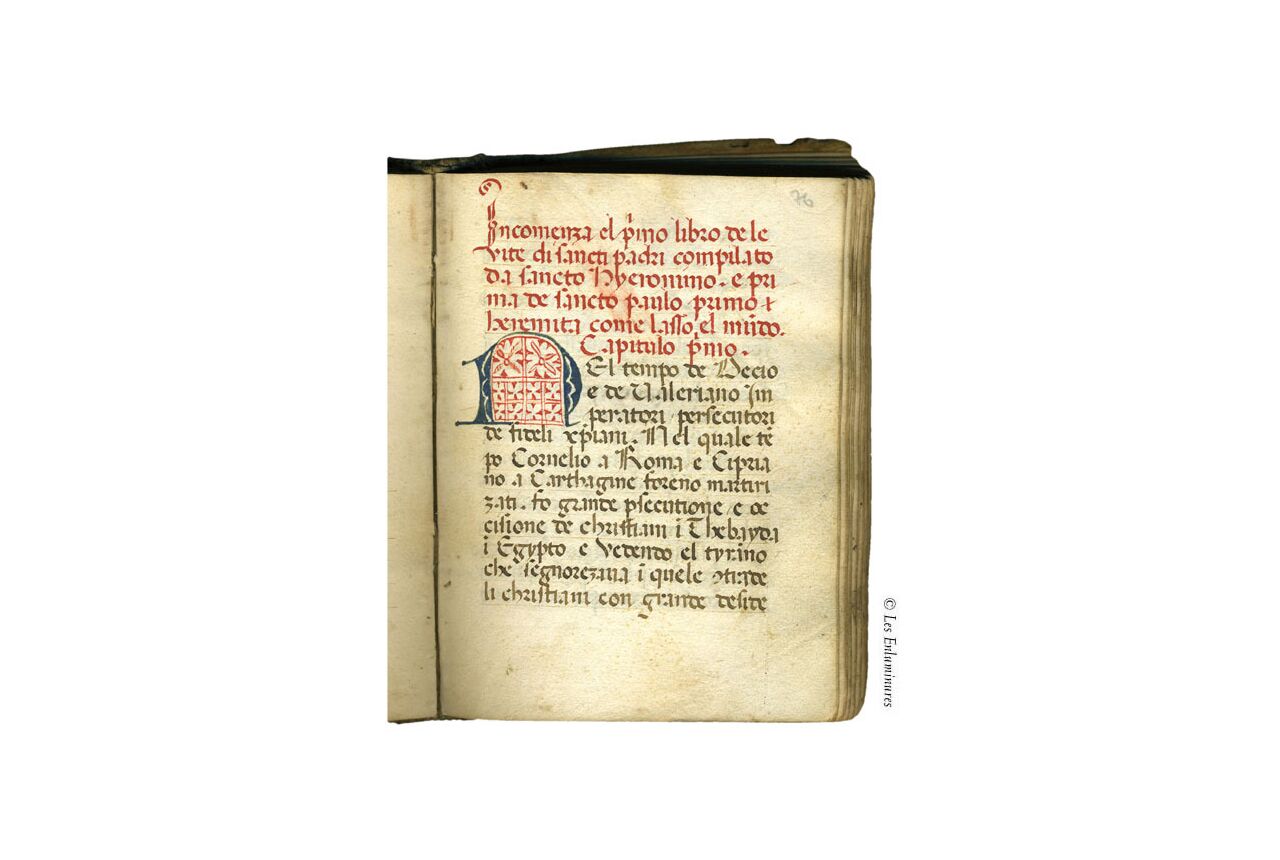 76
Incomenza el p̄mo libro de le
vite di sancti padri compilato
da sancto Hyeronimo. e pri
ma de sancto paulo primo
heremita come lasso el mūdo.
Capitulo p̄mo.
NEl tempo de Decio
e de Valeriano Im
peratori persecutori
de fideli xp̄iani. Nel quale tē
po Cornelio a Roma e Cipria
no a Carthagine foreno martiri
zati. fo grande ꝑsecutione e oc
cisione de christiani ī Thebayda
ī Egypto e vedendo el tyrāno
che segnorezaua ī quele ꝯtrade
li christiani con grande deside
© Les Enluminures